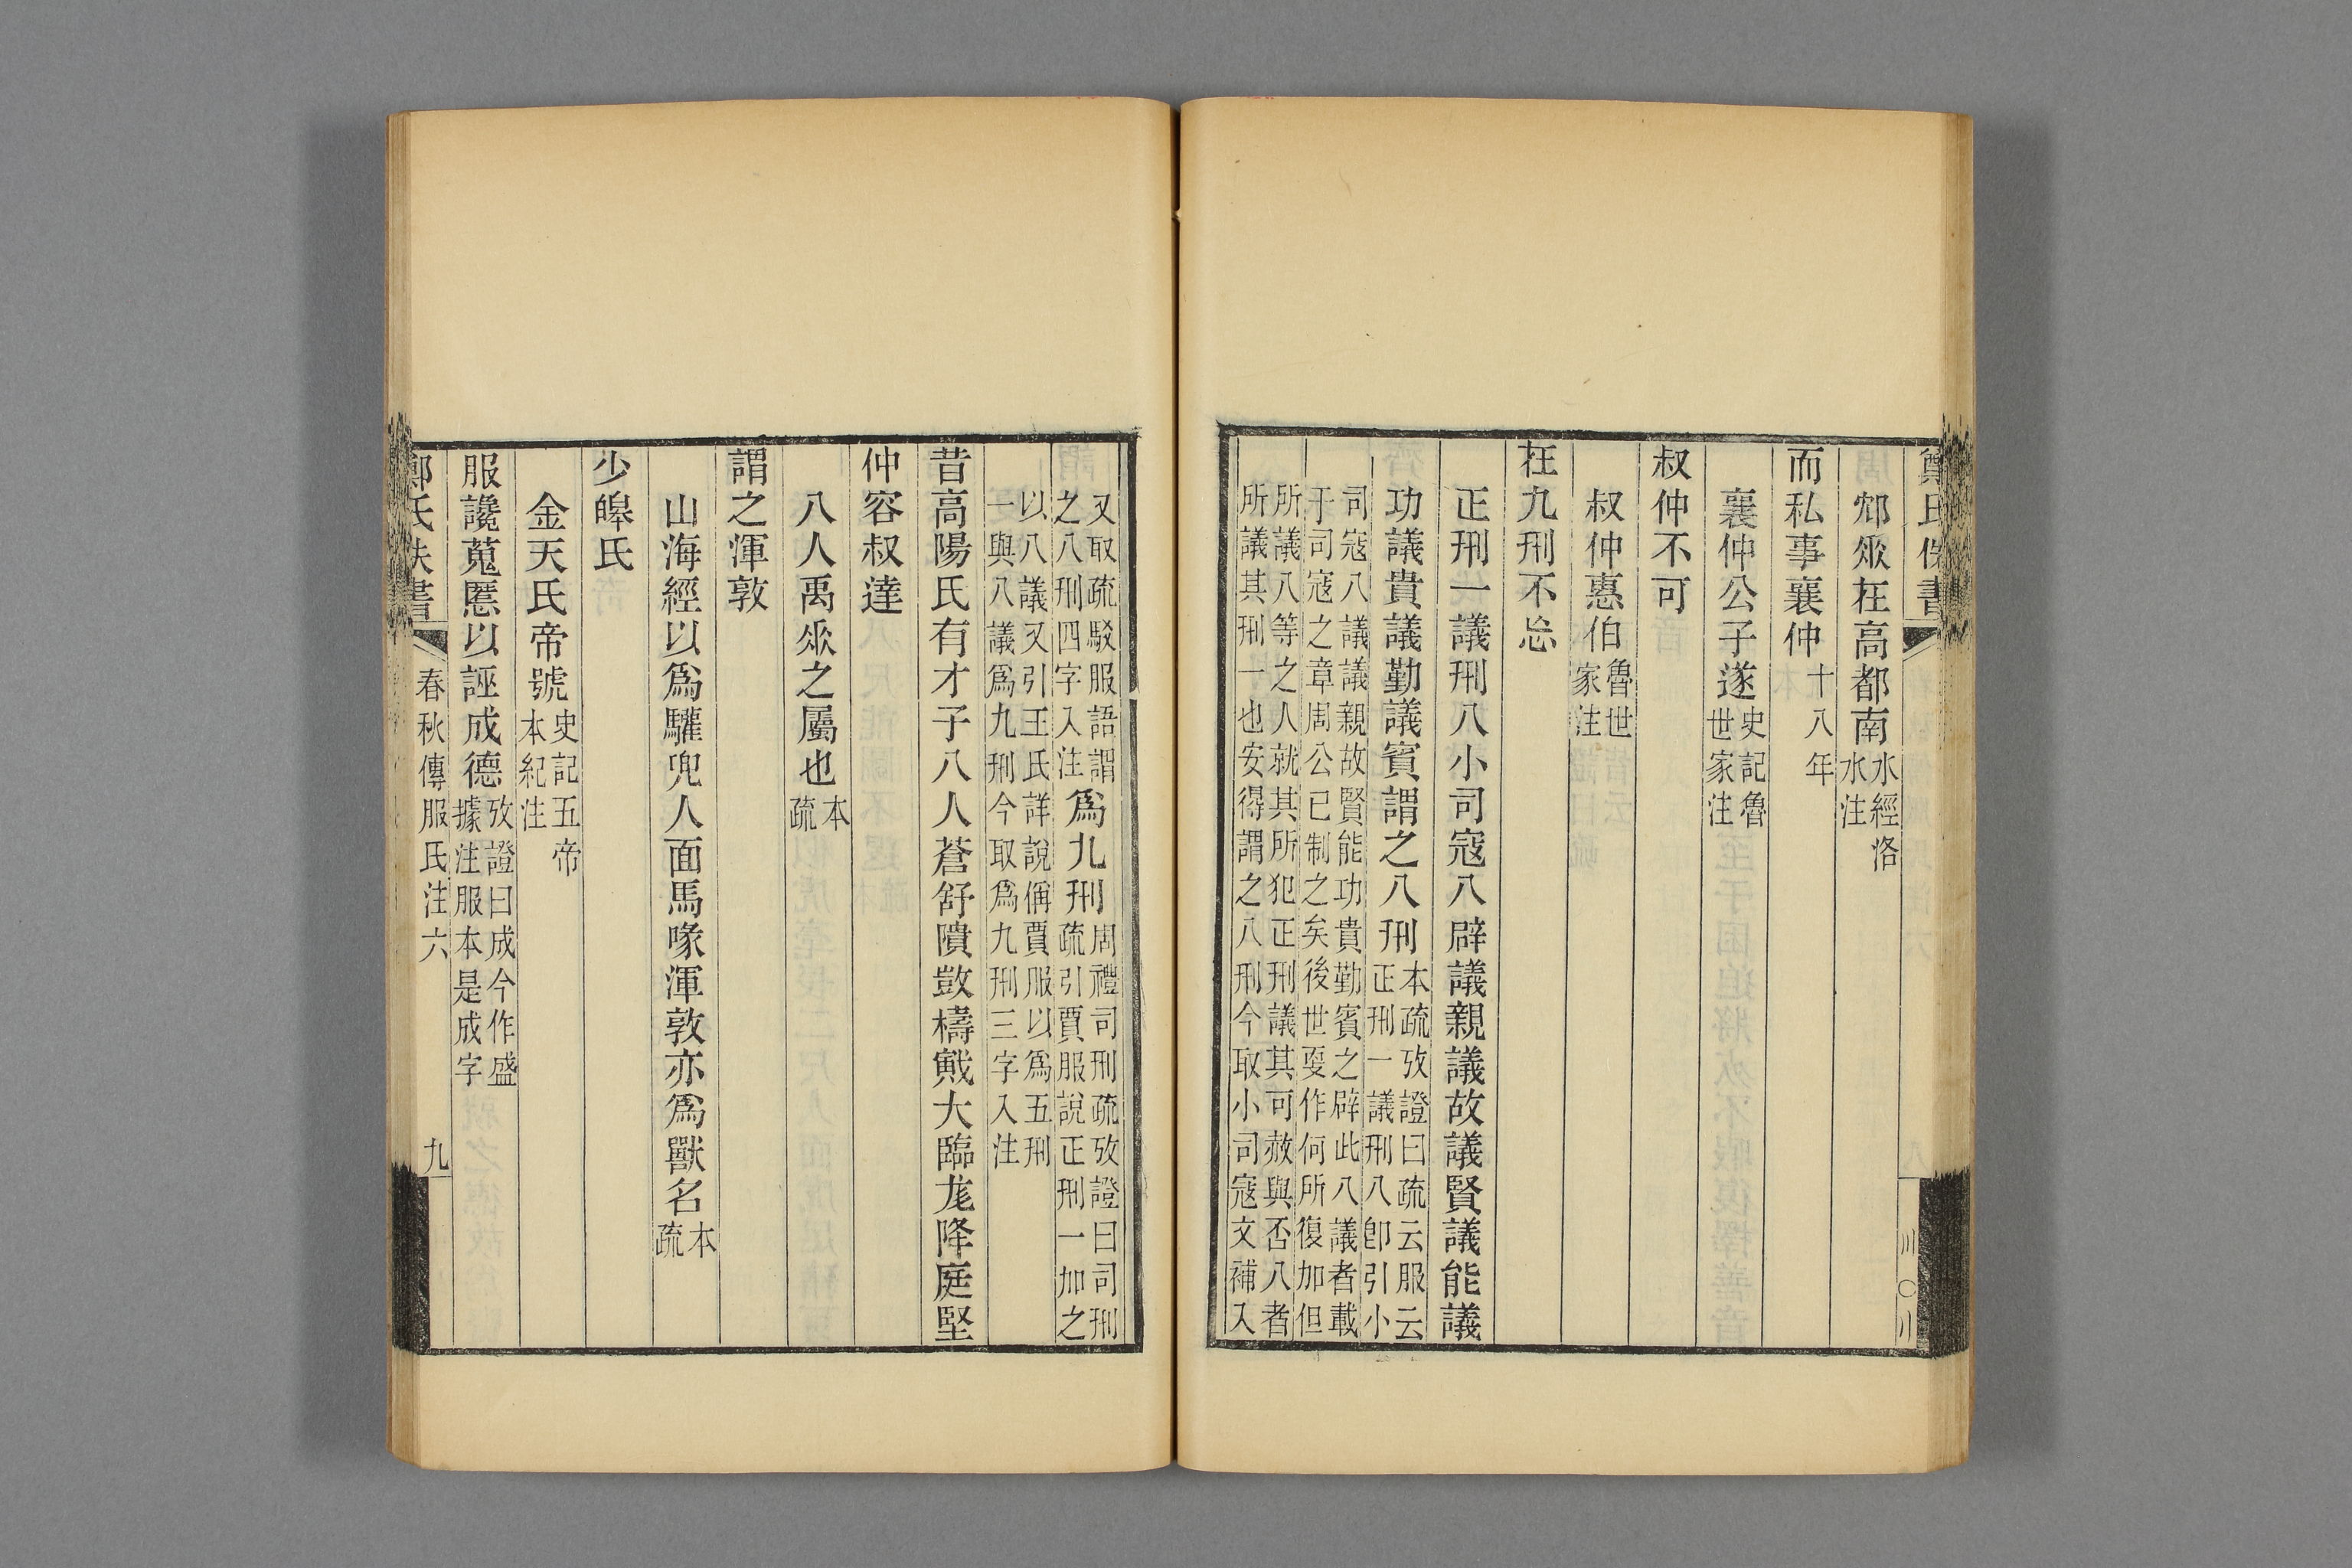 鄭氏佚書
邥𠂝在高都南水經洛
水注
而私事襄仲十八年
襄仲公子遂史記魯
世家注
叔仲不可
叔仲惠伯魯世
家注
在九刑不忘
正刑一議刑八小司寇八辟議親議故議賢議能議
功議貴議勤議賓謂之八刑本疏攷證曰疏云服云
正刑一議刑八卽引小
司寇八議議親故賢能功貴勤賓之辟此八議者載
于司寇之章周公已制之矣後世更作何所復加但
所議八等之人就其所犯正刑議其可赦與否八者
所議其刑一也安得謂之八刑今取小司寇文補入
又取疏駁服語謂
之八刑四字入注爲九刑周禮司刑疏攷證曰司刑
疏引賈服說正刑一加之
以八議又引王氏詳說偁賈服以爲五刑
一與八議爲九刑今取爲九刑三字入注
昔高陽氏有才子八人蒼舒隤敳檮戭大臨尨降庭堅
仲容叔達
八人禹𠂝之屬也本
疏
謂之渾敦
山海經以爲驩兜人面馬喙渾敦亦爲獸名本
疏
少皞氏
金天氏帝號史記五帝
本紀注
服讒蒐慝以誣成德攷證曰成今作盛
據注服本是成字
鄭氏佚書
春秋傳服氏注六
九